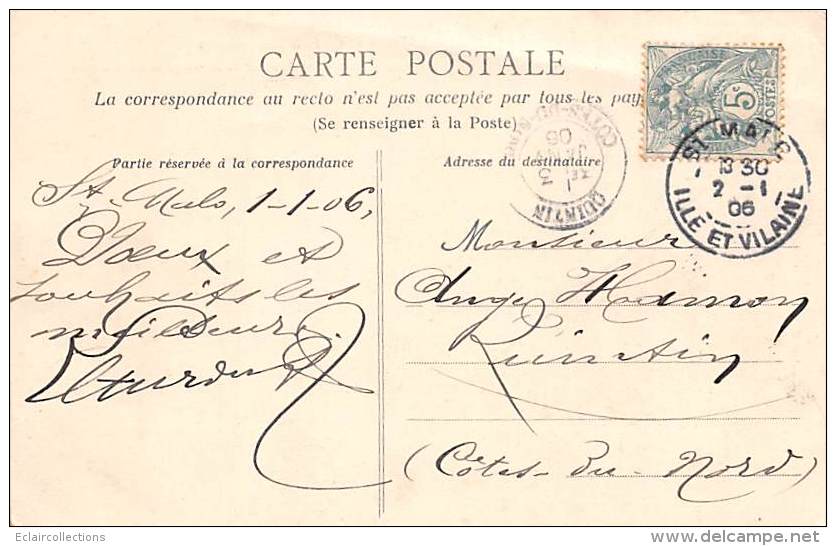 CARTE POSTALE
La correspondance au recto n'est pas acceptée par tous les pay
(Se renseigner à la Poste)
Partie réservée à la correspondance
Adresse du destinataire
5c
POSTES
ST MALO
13 30
2 - 1
06
ILLE ET VILAINE
QUINTIN
COTES-DU-NORD
3
JANV
06
St-Malo, 1-1-06,
Voeux et
souhaits les
meilleurs.
Monsieur
Ange Hamon
Quintin
(Côtes-du-Nord)
Eclaircollections
delcampe.net